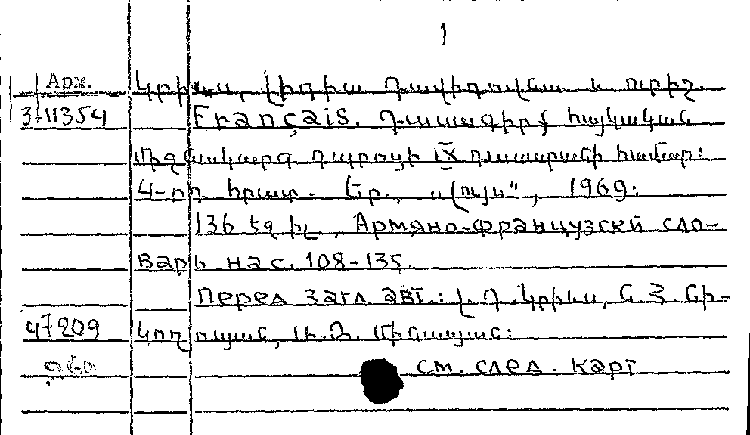 1
Арх. Կրիսա, Լիդիա Դավիդովնա և ուրիշ.
3-11354 Français. Դասագիրք հայկական
միջնակարգ դպրոցի IX դասարանի համար:
4-րդ հրատ. Եր., «Լույս", 1969:
136 էջ իլ, Армяно-французскй сло-
варь на с. 108-135.
Перед загл авт.: Լ. Դ. Կրիսա, Ն. Հ. Նի-
47209 կողոսյան, Ա. Մինասյան:
см. след. карт